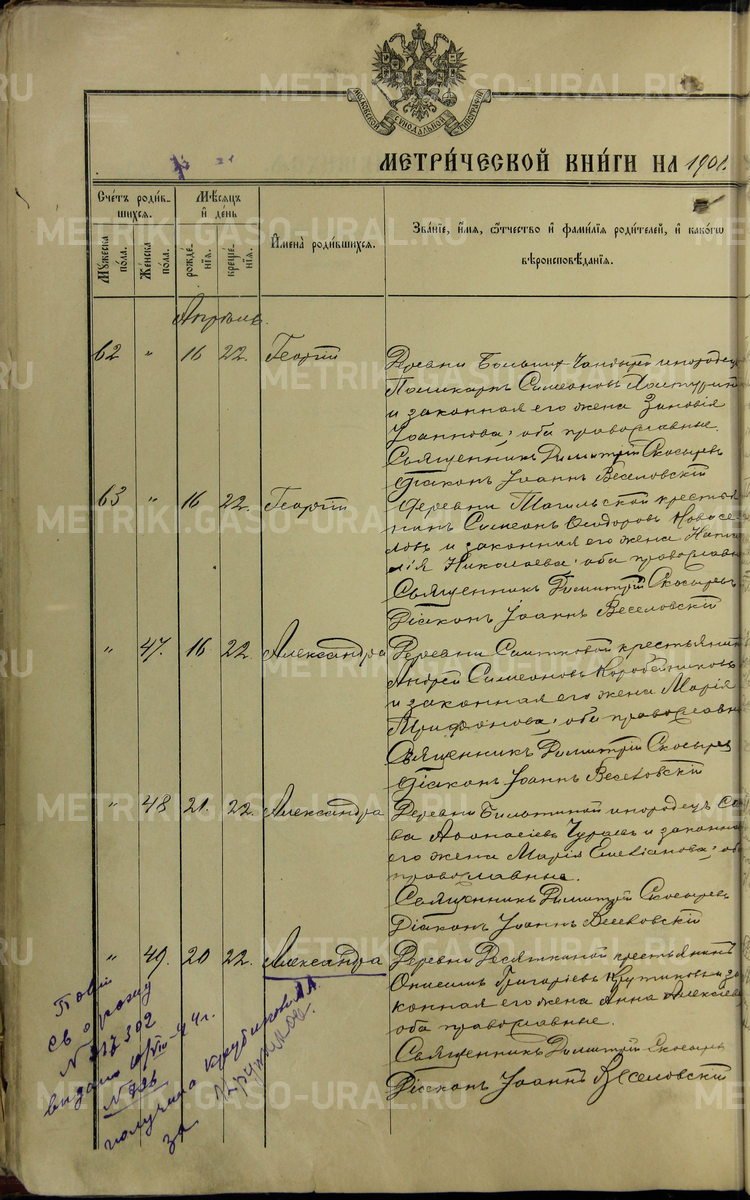 МОСКОВСКОЙ СѴНОДАЛЬНОЙ ТИПОГРАФІИ
МЕТРИ́ЧЕСКОЙ КНИ́ГИ НА 1901.
Счётъ роди́в-
шихся.
Му́жеска
по́ла.
Же́нска
по́ла.
Мѣ́сяцъ
и҆ де́нь
рожде́-
нїя.
креще́-
нїя.
И҆мена̀ роди́вшихся.
Зва́нїе, и҆́мя, ѻ҆́тчество и҆ фами́лїя роди́телей, и҆ како́гѡ
вѣроисповѣ́данїя.
Апрѣль.
62 " 16 22. Георгій
Деревни Больших инородец
Поликарпъ Симеоновъ
и законная его жена Зиновія
Іоаннова; оба православные.
Священникъ Димитрій Скосыревъ
Діаконъ Іоаннъ Веселовскій
63 " 16 22. Георгій
Деревни Тагильской крестья
нинъ Симеонъ Ѳеодоровъ Новосе
ловъ и законная его жена Ната
лія Николаева; оба православн
Священникъ Димитрій Скосыревъ
Діаконъ Іоаннъ Веселовскій
" 47. 16 22. Александра
Деревни крестьянин
Андрей Симеоновъ Коробейниковъ
и законная его жена Марія
Трифонова; оба православн
Священникъ Димитрій Скосырев
Діаконъ Іоаннъ Веселовскій
" 48 21. 22. Александра
Деревни инородецъ Са
ва Аѳанасіевъ и законна
его жена Марія Емеліанова; об
православные.
Священникъ Димитрій Скосыревъ
Діаконъ Іоаннъ Веселовскій
" 49. 20 22. Александра
Деревни Десяткиной крестьянинъ
Онисимъ Григоріевъ и за
конная его жена Анна Алексіев
оба православные.
Священникъ Димитрій Скосыревъ
Діаконъ Іоаннъ Веселовскій
Повт
св о рожд
N 302
выдано 10/VIII-44г.
N 726
получила
за
METRIKI.GASO-URAL.RU